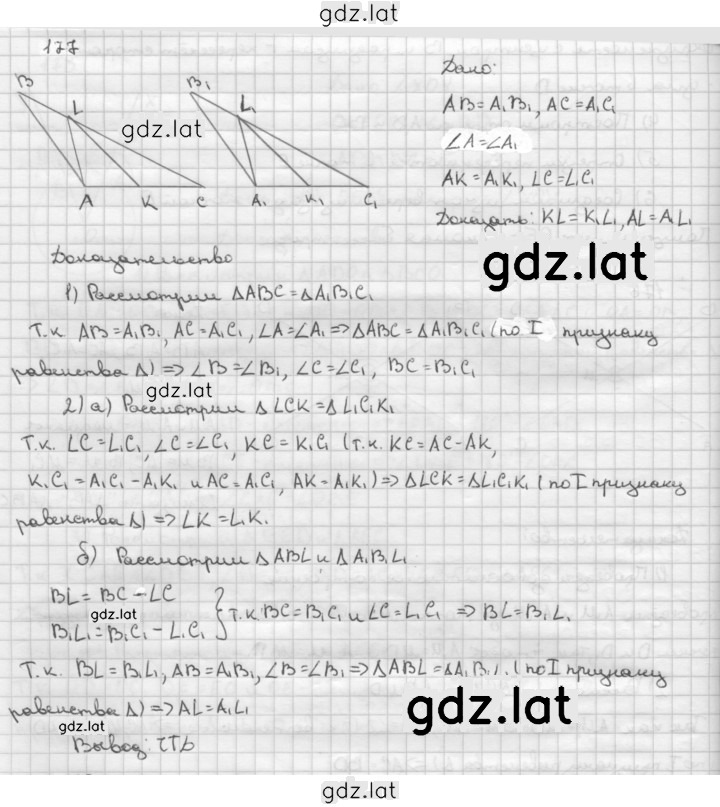 gdz.lat
177
B
L
A
K
C
B₁
L₁
A₁
K₁
C₁
gdz.lat
Дано:
AB = A₁B₁, AC = A₁C₁
∠A = ∠A₁
AK = A₁K₁, LC = L₁C₁
Доказать: KL = K₁L₁, AL = A₁L₁
gdz.lat
Доказательство
1) Рассмотрим ΔABC = ΔA₁B₁C₁
Т.к. AB = A₁B₁, AC = A₁C₁, ∠A = ∠A₁ => ΔABC = ΔA₁B₁C₁ (по I признаку
равенства Δ) => ∠B = ∠B₁, ∠C = ∠C₁, BC = B₁C₁
gdz.lat
2) а) Рассмотрим Δ LCK = Δ L₁C₁K₁
Т.к. LC = L₁C₁, ∠C = ∠C₁, KC = K₁C₁ (т.к. KC = AC - AK,
K₁C₁ = A₁C₁ - A₁K₁ и AC = A₁C₁, AK = A₁K₁) => ΔLCK = ΔL₁C₁K₁ (по I признаку
равенства Δ) => LK = L₁K.
б) Рассмотрим Δ ABL и Δ A₁B₁L₁
BL = BC - LC
gdz.lat
B₁L₁ = B₁C₁ - L₁C₁
т.к. BC = B₁C₁ и LC = L₁C₁ => BL = B₁L₁
Т.к. BL = B₁L₁, AB = A₁B₁, ∠B = ∠B₁ => ΔABL = ΔA₁B₁L₁ (по I признаку
равенства Δ) => AL = A₁L₁
gdz.lat
gdz.lat
Вывод: ЧТД
gdz.lat